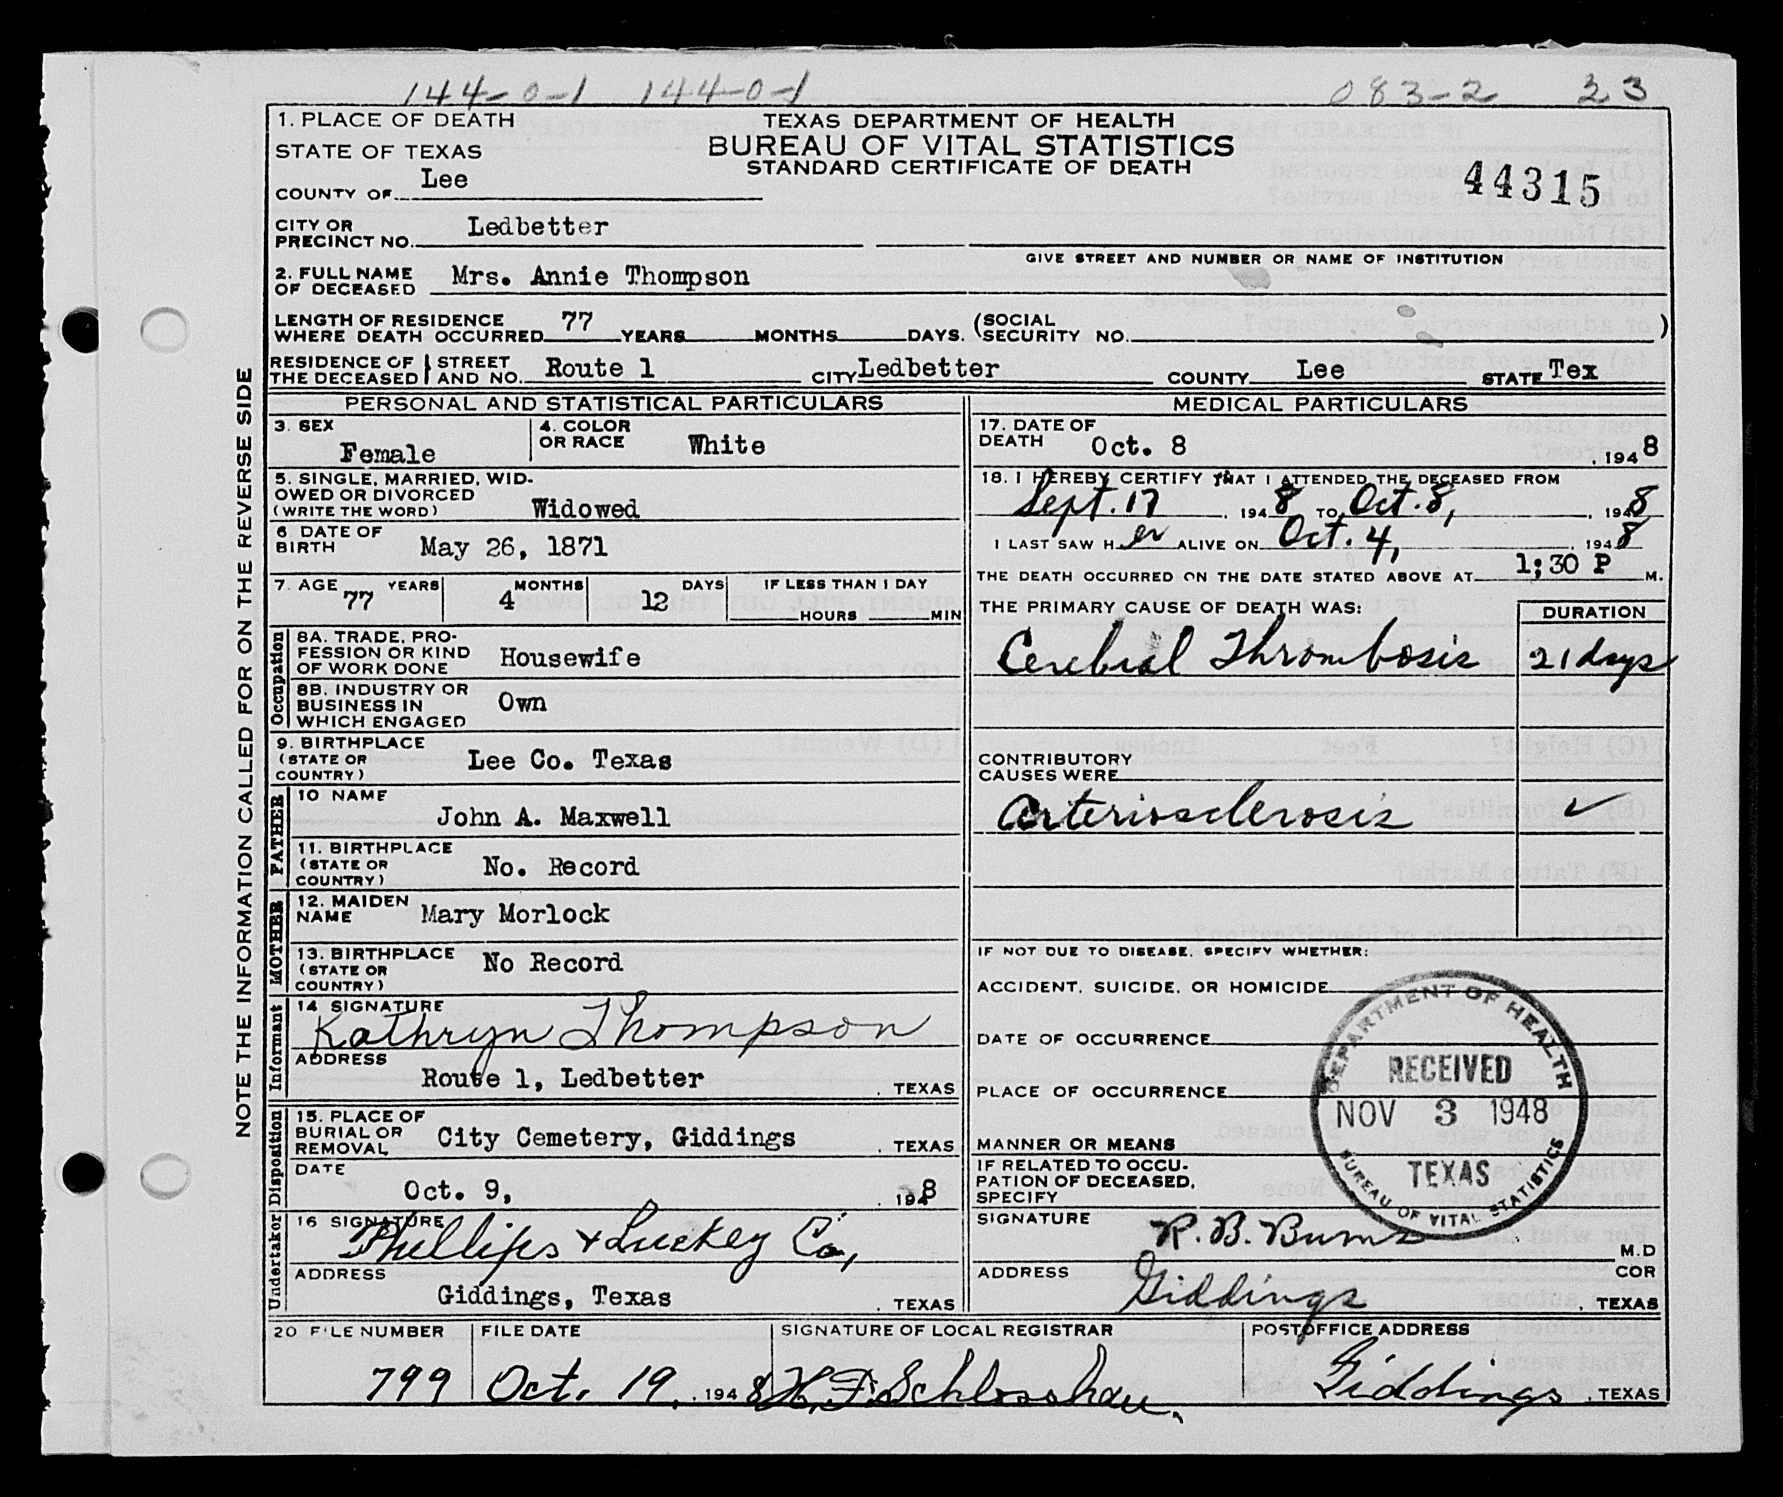 144-0-1 144-0-1 083-2 23
1. PLACE OF DEATH
STATE OF TEXAS
COUNTY OF Lee
TEXAS DEPARTMENT OF HEALTH
BUREAU OF VITAL STATISTICS
STANDARD CERTIFICATE OF DEATH
44315
CITY OR
PRECINCT NO. Ledbetter
GIVE STREET AND NUMBER OR NAME OF INSTITUTION
2. FULL NAME
OF DECEASED Mrs. Annie Thompson
LENGTH OF RESIDENCE
WHERE DEATH OCCURRED 77 YEARS MONTHS DAYS. (SOCIAL
SECURITY NO. )
RESIDENCE OF THE DECEASED STREET AND NO. Route 1 CITY Ledbetter COUNTY Lee STATE Tex
PERSONAL AND STATISTICAL PARTICULARS
3. SEX Female
4. COLOR
OR RACE White
5. SINGLE, MARRIED, WID-
OWED OR DIVORCED
(WRITE THE WORD) Widowed
6 DATE OF
BIRTH May 26, 1871
7. AGE YEARS MONTHS DAYS IF LESS THAN 1 DAY
77 4 12 HOURS MIN
Occupation
8A. TRADE, PRO-
FESSION OR KIND
OF WORK DONE Housewife
8B. INDUSTRY OR
BUSINESS IN
WHICH ENGAGED Own
9. BIRTHPLACE
(STATE OR
COUNTRY) Lee Co. Texas
FATHER
10 NAME John A. Maxwell
11. BIRTHPLACE
(STATE OR
COUNTRY) No. Record
MOTHER
12. MAIDEN
NAME Mary Morlock
13. BIRTHPLACE
(STATE OR
COUNTRY) No Record
Informant
14 SIGNATURE
Kathryn Thompson
ADDRESS
Route 1, Ledbetter . TEXAS
Disposition
15. PLACE OF
BURIAL OR
REMOVAL City Cemetery, Giddings . TEXAS
DATE
Oct. 9, . 1948
Undertaker
16 SIGNATURE
Phillips & Luckey Co,
ADDRESS
Giddings, Texas . TEXAS
MEDICAL PARTICULARS
17. DATE OF
DEATH Oct. 8 . 1948
18. I HEREBY CERTIFY THAT I ATTENDED THE DECEASED FROM
Sept. 17 . 1948 TO Oct. 8, . 1948
I LAST SAW HER ALIVE ON Oct. 4, . 1948
THE DEATH OCCURRED ON THE DATE STATED ABOVE AT 1;30 P M.
THE PRIMARY CAUSE OF DEATH WAS: DURATION
Cerebral Thrombosis 21 days
CONTRIBUTORY
CAUSES WERE
Arteriosclerosis ✓
IF NOT DUE TO DISEASE, SPECIFY WHETHER:
ACCIDENT, SUICIDE, OR HOMICIDE
DATE OF OCCURRENCE
PLACE OF OCCURRENCE
MANNER OR MEANS
IF RELATED TO OCCU-
PATION OF DECEASED,
SPECIFY
DEPARTMENT OF HEALTH
RECEIVED
NOV 3 1948
TEXAS
BUREAU OF VITAL STATISTICS
SIGNATURE R. B. Burns
M.D
COR
ADDRESS Giddings . TEXAS
20 FILE NUMBER FILE DATE SIGNATURE OF LOCAL REGISTRAR POSTOFFICE ADDRESS
799 Oct. 19, . 1948 H. F. Schlosshau. Giddings . TEXAS
NOTE THE INFORMATION CALLED FOR ON THE REVERSE SIDE